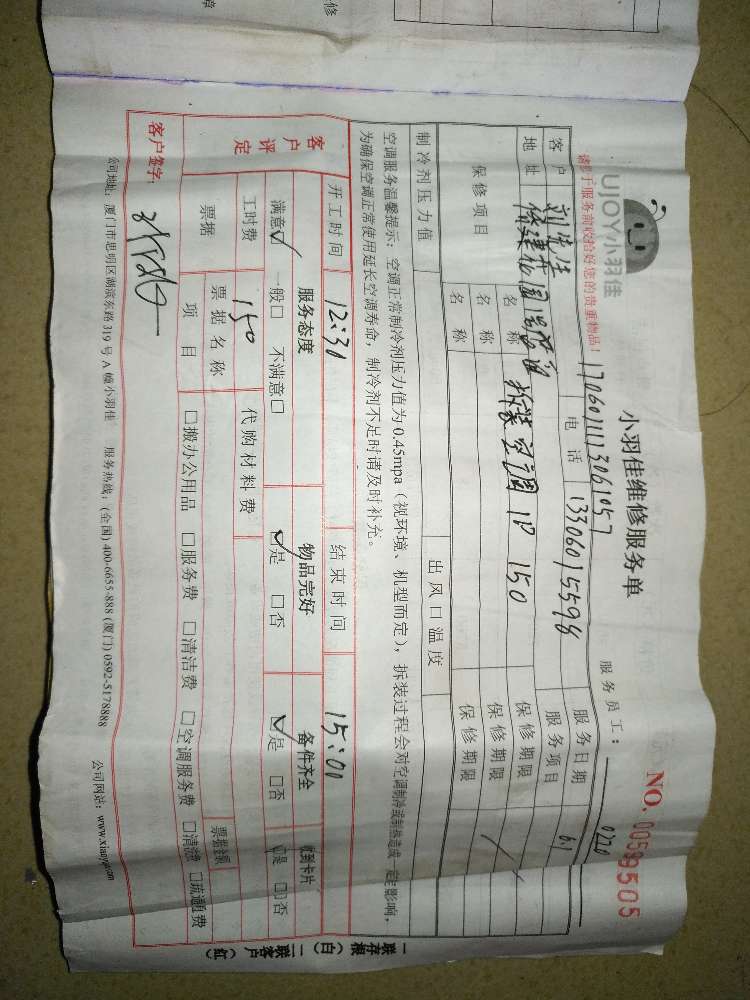 修
障
UJOY小羽佳
小羽佳维修服务单
NO. 00599505
请妥于服务前收拾好您的贵重物品！
1706011113061057
服务员工：
0220
客户
刘先生
电话
13306015598
服务日期
6.1
地址
服务项目
保修项目
名称
拆装空调 1P 150
保修期限
名称
保修期限
名称
保修期限
制冷剂压力值
出风口温度
空调服务温馨提示：空调正常制冷剂压力值为0.45mpa（视环境、机型而定），拆装过程会对空调制冷或制热造成一定影响，
为确保空调正常使用延长空调寿命，制冷剂不足时请及时补充。
开工时间
12:30
结束时间
15:00
客户评定
服务态度
物品完好
备件齐全
收到卡片
满意☑ 一般□ 不满意□
☑是 □否
☑是 □否
☑是 □否
工时费
150
代购材料费
票据
票据名称
票据金额
项目
□搬办公用品 □服务费 □清洁费 □空调服务费 □清渣 □疏通费
客户签字：
公司地址：厦门市思明区湖滨东路319号A幢小羽佳 服务热线：(全国) 400-6655-888 (厦门) 0592-5178888
公司网站：
一联存根（白） 二联客户（红）